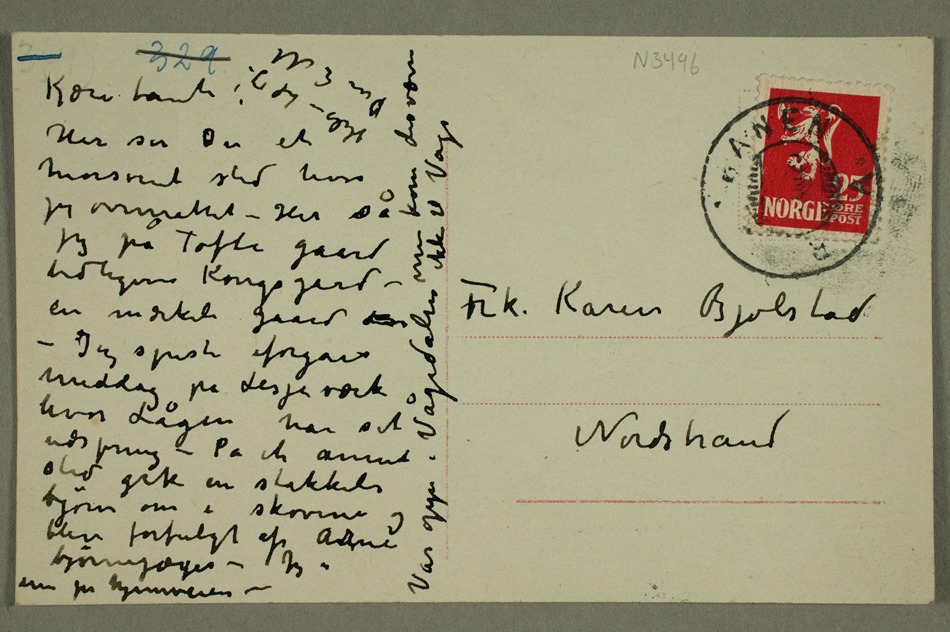 329
N3496
Kjære tante!
Her ser Du et
morsomt sted hvor
jeg overnattet – Her så
jeg på Tofte gaard
tidligere Kongsgård –
en mærkel gaard
– Jeg spiste iforgaars
middag på Lesjeværk
hvor Lågen har sit
udspring – På et annet
sted gik en stakkels
bjørn om i skovene og
blev forfulgt af
bjørnejæger – Jeg
er på hjemveien –
Var oppe i Vågedalen men kom desværre
ikke til Vage
BANEN
NORGE
25
ØRE
POST
Frk. Karen Bjølstad
Nordstrand